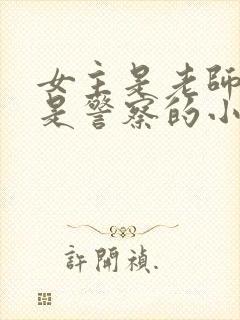 女主是老師
是警察的小
許開禎.